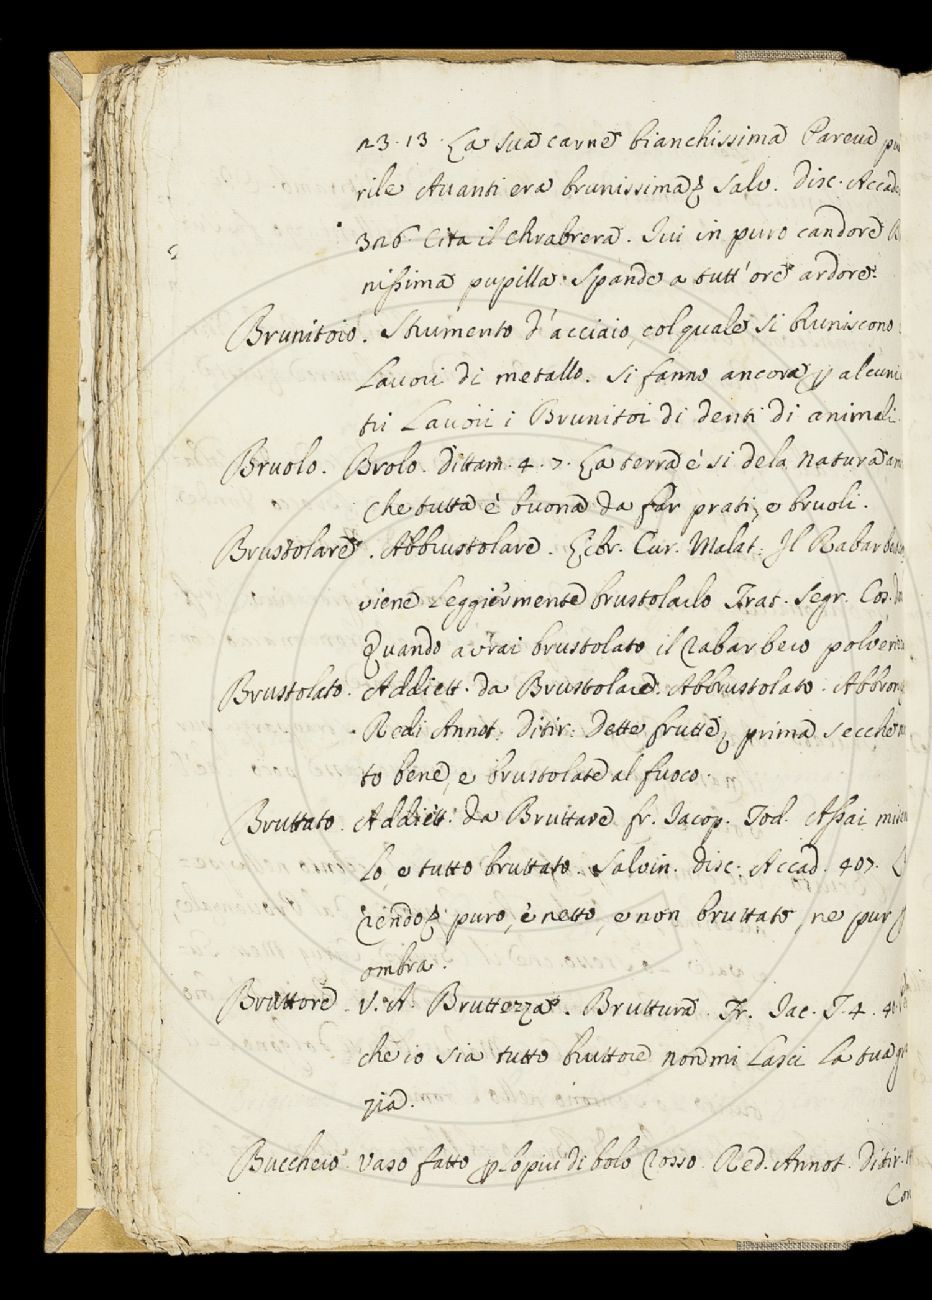 23. 13. La sua carne bianchissima Pareva pu
rile Avanti era brunissima; Salv. Disc. Accad.
326. Cita il Chiabrera. Ivi in puro candore
nissima pupilla Spande a tutt' ore ardore.
Brunitoio. Strumento d'acciaio, col quale si bruniscono
Lavori di metallo. si fanno ancora p alcuni
tri Lavori i Brunitoi di denti di animali
Bruolo. Brolo. dittam. 4. 7. La terra è si de la natura
che tutta è buona da far prati, e bruoli.
Brustolare. Abbrustolare. Libr. Cur. Malat: Il Rabarbe
viene Leggiermente brustolarlo Trat. Segr. Cos.
Quando avrai brustolato il rabarbero polveri
Brustolato. Addiett. da Brustolare. Abbrustolato. Abbron
Redi Annot: ditir: Dette frutte, prima secche
to bene, e brustolate al fuoco.
Bruttato. Addiett. da Bruttare fr. Jacop. Tod. Assai mi
lo, e tutto bruttato. Salvin. disc. Accad. 407.
puro, e netto, e non bruttato, ne pur
ombra.
Bruttore. V. A. Bruttezza. Bruttura. Fr. Jac. T. 4. 4
che io sia tutto bruttore non mi Lasci La tua
zia.
Bucchero. Vaso fatto p Lo piu di bolo rosso. Red. Annot. Ditir.
Con